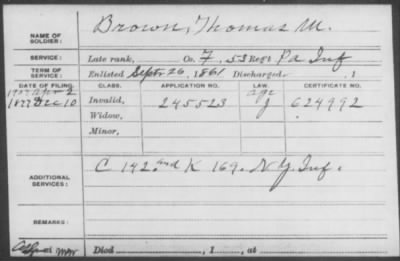 NAME OF SOLDIER: Brown, Thomas M.
SERVICE: Late rank, Co. F, 53 Reg't Pa Inf
TERM OF SERVICE: Enlisted Sept. 26, 1861 Discharged , 1
DATE OF FILING. CLASS. APPLICATION NO. LAW. CERTIFICATE NO.
Apr 2 age
1877 Dec 10 Invalid, 245523 J 624992
Widow,
Minor,
ADDITIONAL SERVICES: C 142nd K 169. N.Y. Inf.
REMARKS:
Died , 1 , at